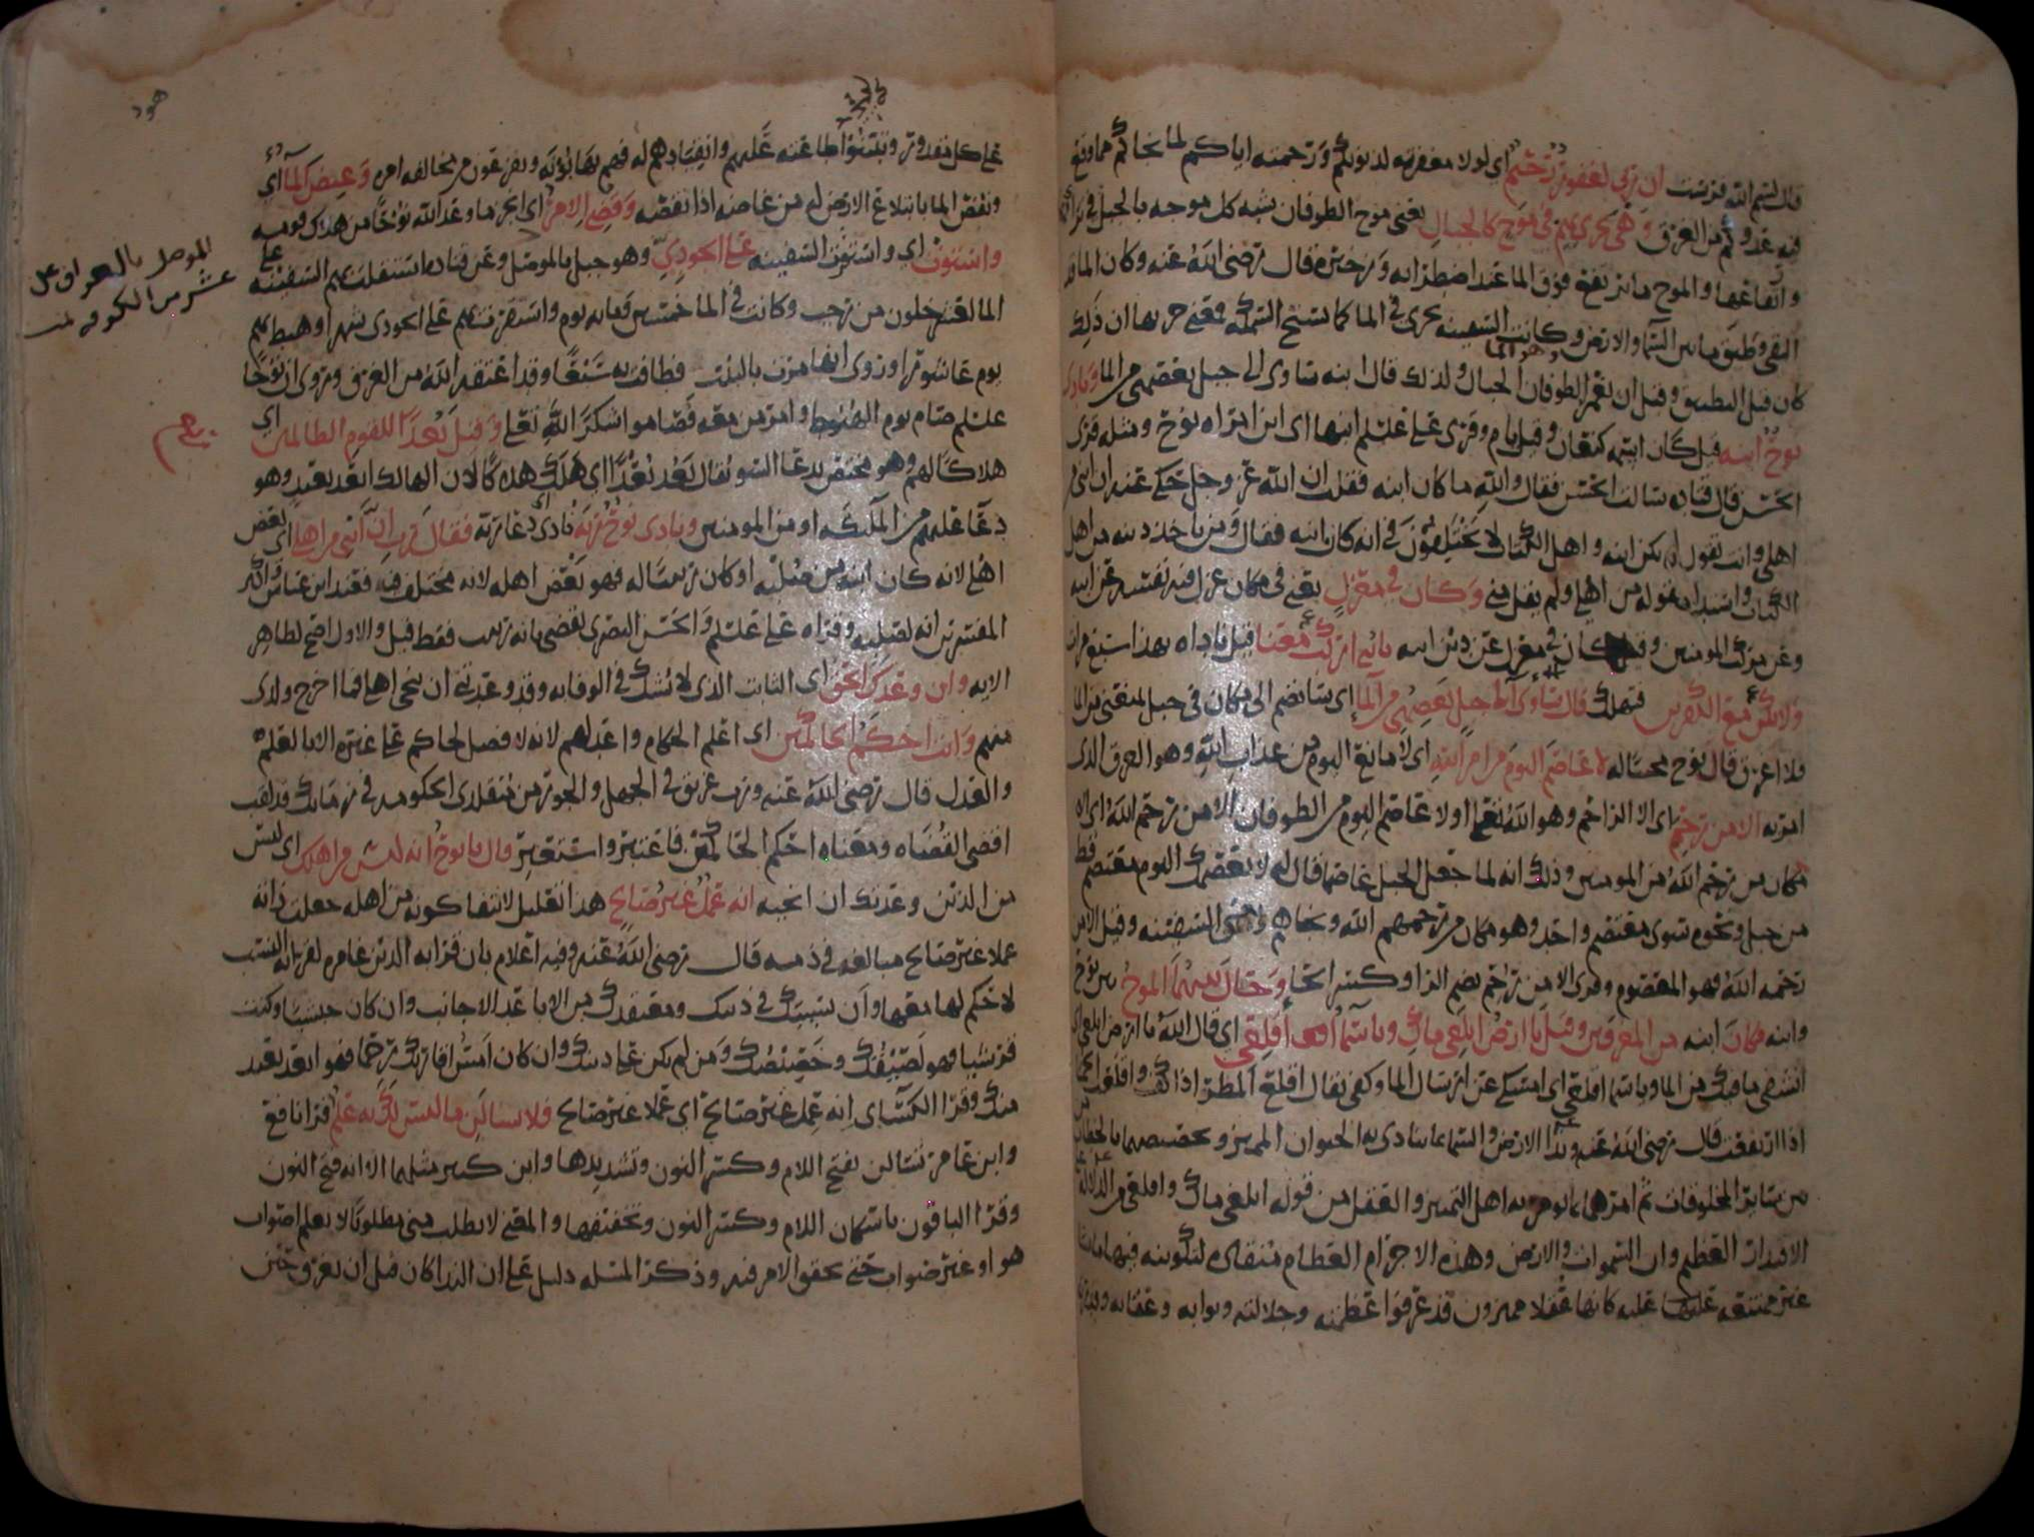 قال بسم الله فرست ان ربي لغفور رحيم اي لولا مغفرته لذنوبكم ورحمته اياكم لما نجاكم مما وقع
فيه عدوكم من الغرق وهي تجري بهم في موج كالجبال يعني موج الطوفان شبه كل موجه بالجبل في
وارتفاعها والموج ما ارتفع فوق الما عند اضطرابه وزخرته قال رضي الله عنه وكان الما قد
التقى وطبق ما بين السما والارض وكانت السفينه تجري في الما كما تسبح السمكه فمعنى جريها ان ذلك
كان قبل التطبيق وقبل ان يغمر الطوفان الجبال ولذلك قال ابنه ساوي الى جبل يعصمني من الما ونادى
نوح ابنه قيل كان اسمه كنعان وقيل يام وقرى علي عليلم ابنها اي ابن امراه نوح ومثله قرى
الحسن قال قتاده سالت الحسن فقال والله ما كان ابنه فقلت ان الله عز وجل حكى عنه ان ابني من
اهلي وانت تقول لم يكن ابنه واهل الكتاب لا يختلفون في انه كان ابنه فقال ومن ياخذ دينه من اهل
الكتاب واستدل بقوله من اهلي ولم يقل مني وكان في معزل يعني في مكان عزل فيه نفسه عن ابيه
وعن مركب المومنين وقيل كان في معزل عن دين ابيه يا بني اركب معنا قيل ناداه بهذا
ولا تكن مع الكفرين فتهلك قال ساوي الى جبل يعصمني من الما اي سانضم الى مكان في جبل لمنعني من الما
فلا اغرق قال نوح مجيبا له لا عاصم اليوم من امر الله اي لا مانع اليوم من عذاب الله وهو الغرق الذي
امر به الا من رحم اي الا الراحم وهو الله تعالى او لا عاصم اليوم من الطوفان الا من رحم الله اي الا
مكان من رحم الله من المومنين وذلك انه لما جعل الجبل عاصما قال له لا يعصمك اليوم معتصم قط
من جبل ونحوه سوى معتصم واحد وهو مكان من رحمهم الله ونجاهم يعني السفينه وقيل الا من
رحمه الله فهو المعصوم وقرى الا من رحم بضم الرا وكسر الحا وحال بينهما الموج بين نوح
وابنه فكان ابنه من المغرقين وقيل يا ارض ابلعي ماك ويا سما اقلعي اي قال الله يا ارض ابلعي اي
انشفي ما فيك من الما ويا سما اقلعي اي امسكي عن ارسال الما وكفي يقال اقلع المطر اذا كف واقلعت الحما
اذا ارتفعت قال رضي الله عنه وندا الارض والسما بما ينادى به الحيوان المميز وتخصيصهما بالخطاب
من سائر المخلوقات ثم امرهما بما يومر به اهل التمييز والعقل من قوله ابلعي ماك واقلعي من الدلاله
الاقتدار العظيم وان السموات والارض وهذه الاجرام العظام منقاده لتكوينه فيها ما يشا
غير ممتنعه عليه كانها عقلا مميزون قد عرفوا عظمته وجلالته وثوابه وعقابه
هود
على كل مقدور وتبينوا طاعته عليهم وانقيادهم له فهم يهابونه ويفزعون من مخالفه امره وغيض الما اي
ونقص الما بابتلاع الارض له من غاضه اذا نقصه وقضي الامر اي انجز ما وعد الله نوحا من هلاك قومه
واستوت اي واستوت السفينه على الجودي وهو جبل بالموصل وعن قتاده استقلت بهم السفينه على
الما لعشر خلون من رجب وكانت في الما خمسين ومايه يوم واستقر بهم على الجودي شهرا وهبط بهم
يوم عاشورا وروي انها مرت بالبيت فطافت به سبعا وقد اعتقه الله من الغرق وروي ان نوحا
عليلم صام يوم الهبوط وامر من معه فصاموا شكرا لله تعالى وقيل بعدا للقوم الظالمين اي
هلاكا لهم وهو مختص بدعا السو يقال بعد بعدا اي هلك هلاكا لان الهالك ابعد بعيد وهو
دعا عليهم من الملائكه او من المومنين ونادى نوح ربه نادى اي دعا ربه فقال رب ان ابني من اهلي اي بعض
اهلي لانه كان ابنه من صلبه او كان ربيبا له فهو بعض اهله لانه مختلف فيه فعند ابن عباس واكثر
المفسرين انه لصلبه وقراه علي عليلم والحسن البصري تقضي بانه ربيب فقط قيل والاول اصح لظاهر
الايه وان وعدك الحق اي الثابت الذي لا يشك في الوفا به وقد وعدتني ان تنجي اهلي فما اخرج ولدي
منهم وانت احكم الحاكمين اي اعلم الحكام واعدلهم لانه لا فضل لحاكم على غيره الا بالعلم
والعدل قال رضي الله عنه ورب غريق في الجهل والجور من متقلدي الحكومه في زمانك قد لقب
اقضى القضاه ومعناه احكم الحاكمين فاعتبر واستعبر قال يا نوح انه ليس من اهلك اي ليس
من الذين وعدتك ان انجيه انه عمل غير صالح هذا تعليل لانتفا كونه من اهله جعلت ذاته
عملا غير صالح مبالغه في ذمه قال رضي الله عنه وفيه اعلام بان قرابه الدين غامره لقرابه النسب
لا حكم لها معها وان نسيبك في دينك ومعتقدك من الاباعد الاجانب وان كان حبشيا وكنت
قرشيا فهو لصيقك وخصيصك ومن لم يكن على دينك وان كان امس اقاربك رحما فهو ابعد بعيد
منك وقرا الكسائي انه عمل غير صالح اي عملا غير صالح فلا تسالن ما ليس لك به علم قرا نافع
وابن عامر تسالن بفتح اللام وكسر النون وتشديدها وابن كثير مثلهما الا انه فتح النون
وقرا الباقون باسكان اللام وكسر النون وتخفيفها والمعنى لا تطلب مني مطلوبا لا تعلم اصواب
هو او غير صواب حتى تحقق الامر فيه وذكر المسله دليل على ان الندا كان قبل ان يغرق حين
الموصل بالعراق على
عشر من الكوفه